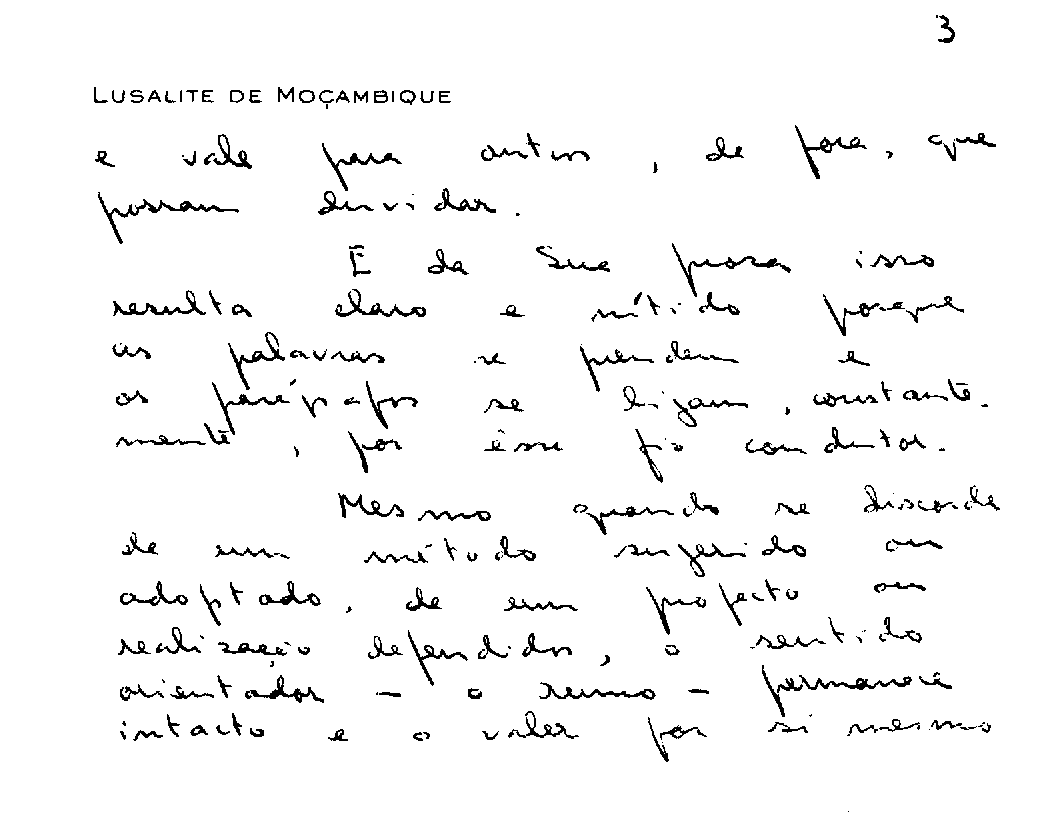 3
LUSALITE DE MOÇAMBIQUE
e vale para outros, de fora, que
possam duvidar.
E da Sua prosa isso
resulta claro e nítido porque
as palavras se prendem e
os parágrafos se ligam, constante-
mente, por êsse fio condutor.
Mesmo quando se discorda
de um método sugerido ou
adoptado, de um projecto ou
realização defendidos, o sentido
orientador – o rumo – permanece
intacto e a valer por si mesmo